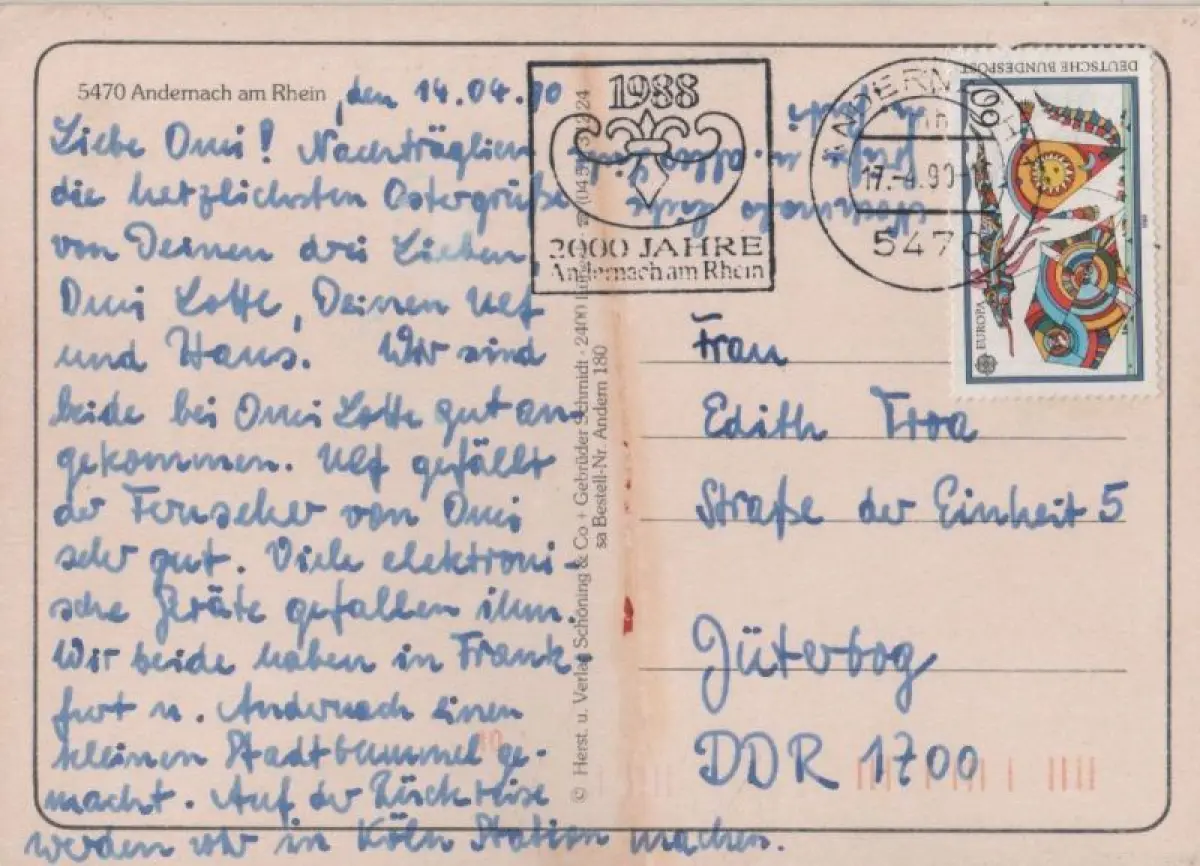 5470 Andernach am Rhein, den 14.04.90
Liebe Omi! Nachträglich
die herzlichsten Ostergrüße
von Deinen drei Lieben,
Omi Lotte, Deinen Ulf
und Hans. Wir sind
beide bei Omi Lotte gut an-
gekommen. Ulf gefällt
der Fernseher von Omi
sehr gut. Viele elektroni-
sche Geräte gefallen ihm.
Wir beide haben in Frank-
furt u. Andernach einen
kleinen Stadtbummel ge-
macht. Auf der Rückreise
werden wir in Köln Station machen.
Nochmals
1988
2000 JAHRE
Andernach am Rhein
ANDERNACH
17.-4.90
5470
DEUTSCHE BUNDESPOST
60
EUROPA
© Herst. u. Verlag Schöning & Co + Gebrüder Schmidt · 2400
sa Bestell-Nr. Andern 180
Frau
Edith Troa
Straße der Einheit 5
Jüterbog
DDR 1700